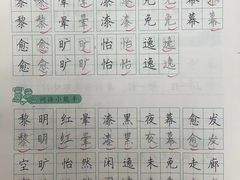 黎 黎 晕 晕 漆 漆 幕 幕
愈 愈 旷 旷 怡 怡 逸 逸
愈 愈 旷 旷 怡 怡 逸 逸
词语小能手
黎 明 红 晕 漆 黑 夜 幕 愈 发
黎 明 红 晕 漆 黑 夜 幕 愈 发
空 旷 怡 然 闲 逸 未 免 走 廊